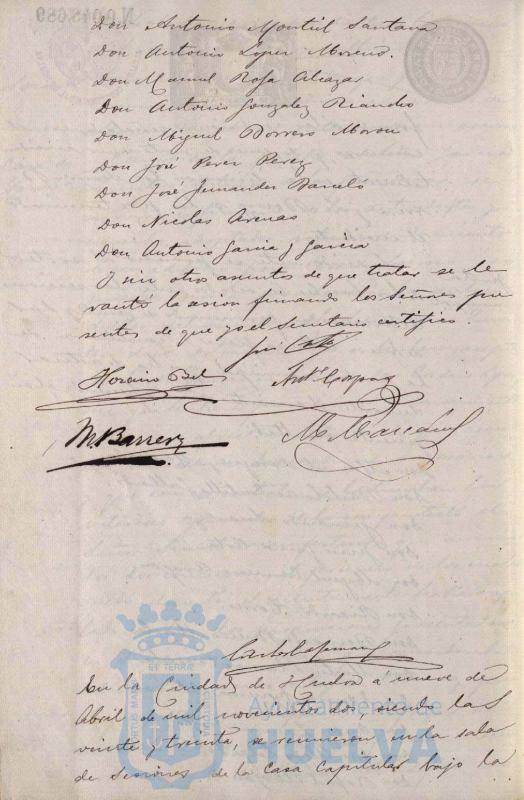 Don Antonio Montiel Santana
Don Antonio Lopez Moreno.
Don Manuel Rosa Alcazar
Don Antonio Gonzalez Riancho
Don Miguel Borrero Moron
Don José Perez Perez
Don José Fernandez Barceló
Don Nicolas Arenas
Don Antonio Garcia y Garcia
Y sin otros asuntos de que tratar se le
vantó la sesion firmando los Señores pre
sentes de que yo el Secretario certifico.
Horacio Bel
M. Barrera
En la Ciudad de Huelva á nueve de
Abril de mil novecientos dos, siendo las
veinte y treinta, se reunieron en la sala
de Sesiones de la Casa Capitular bajo la
Ayuntamiento de
HUELVA